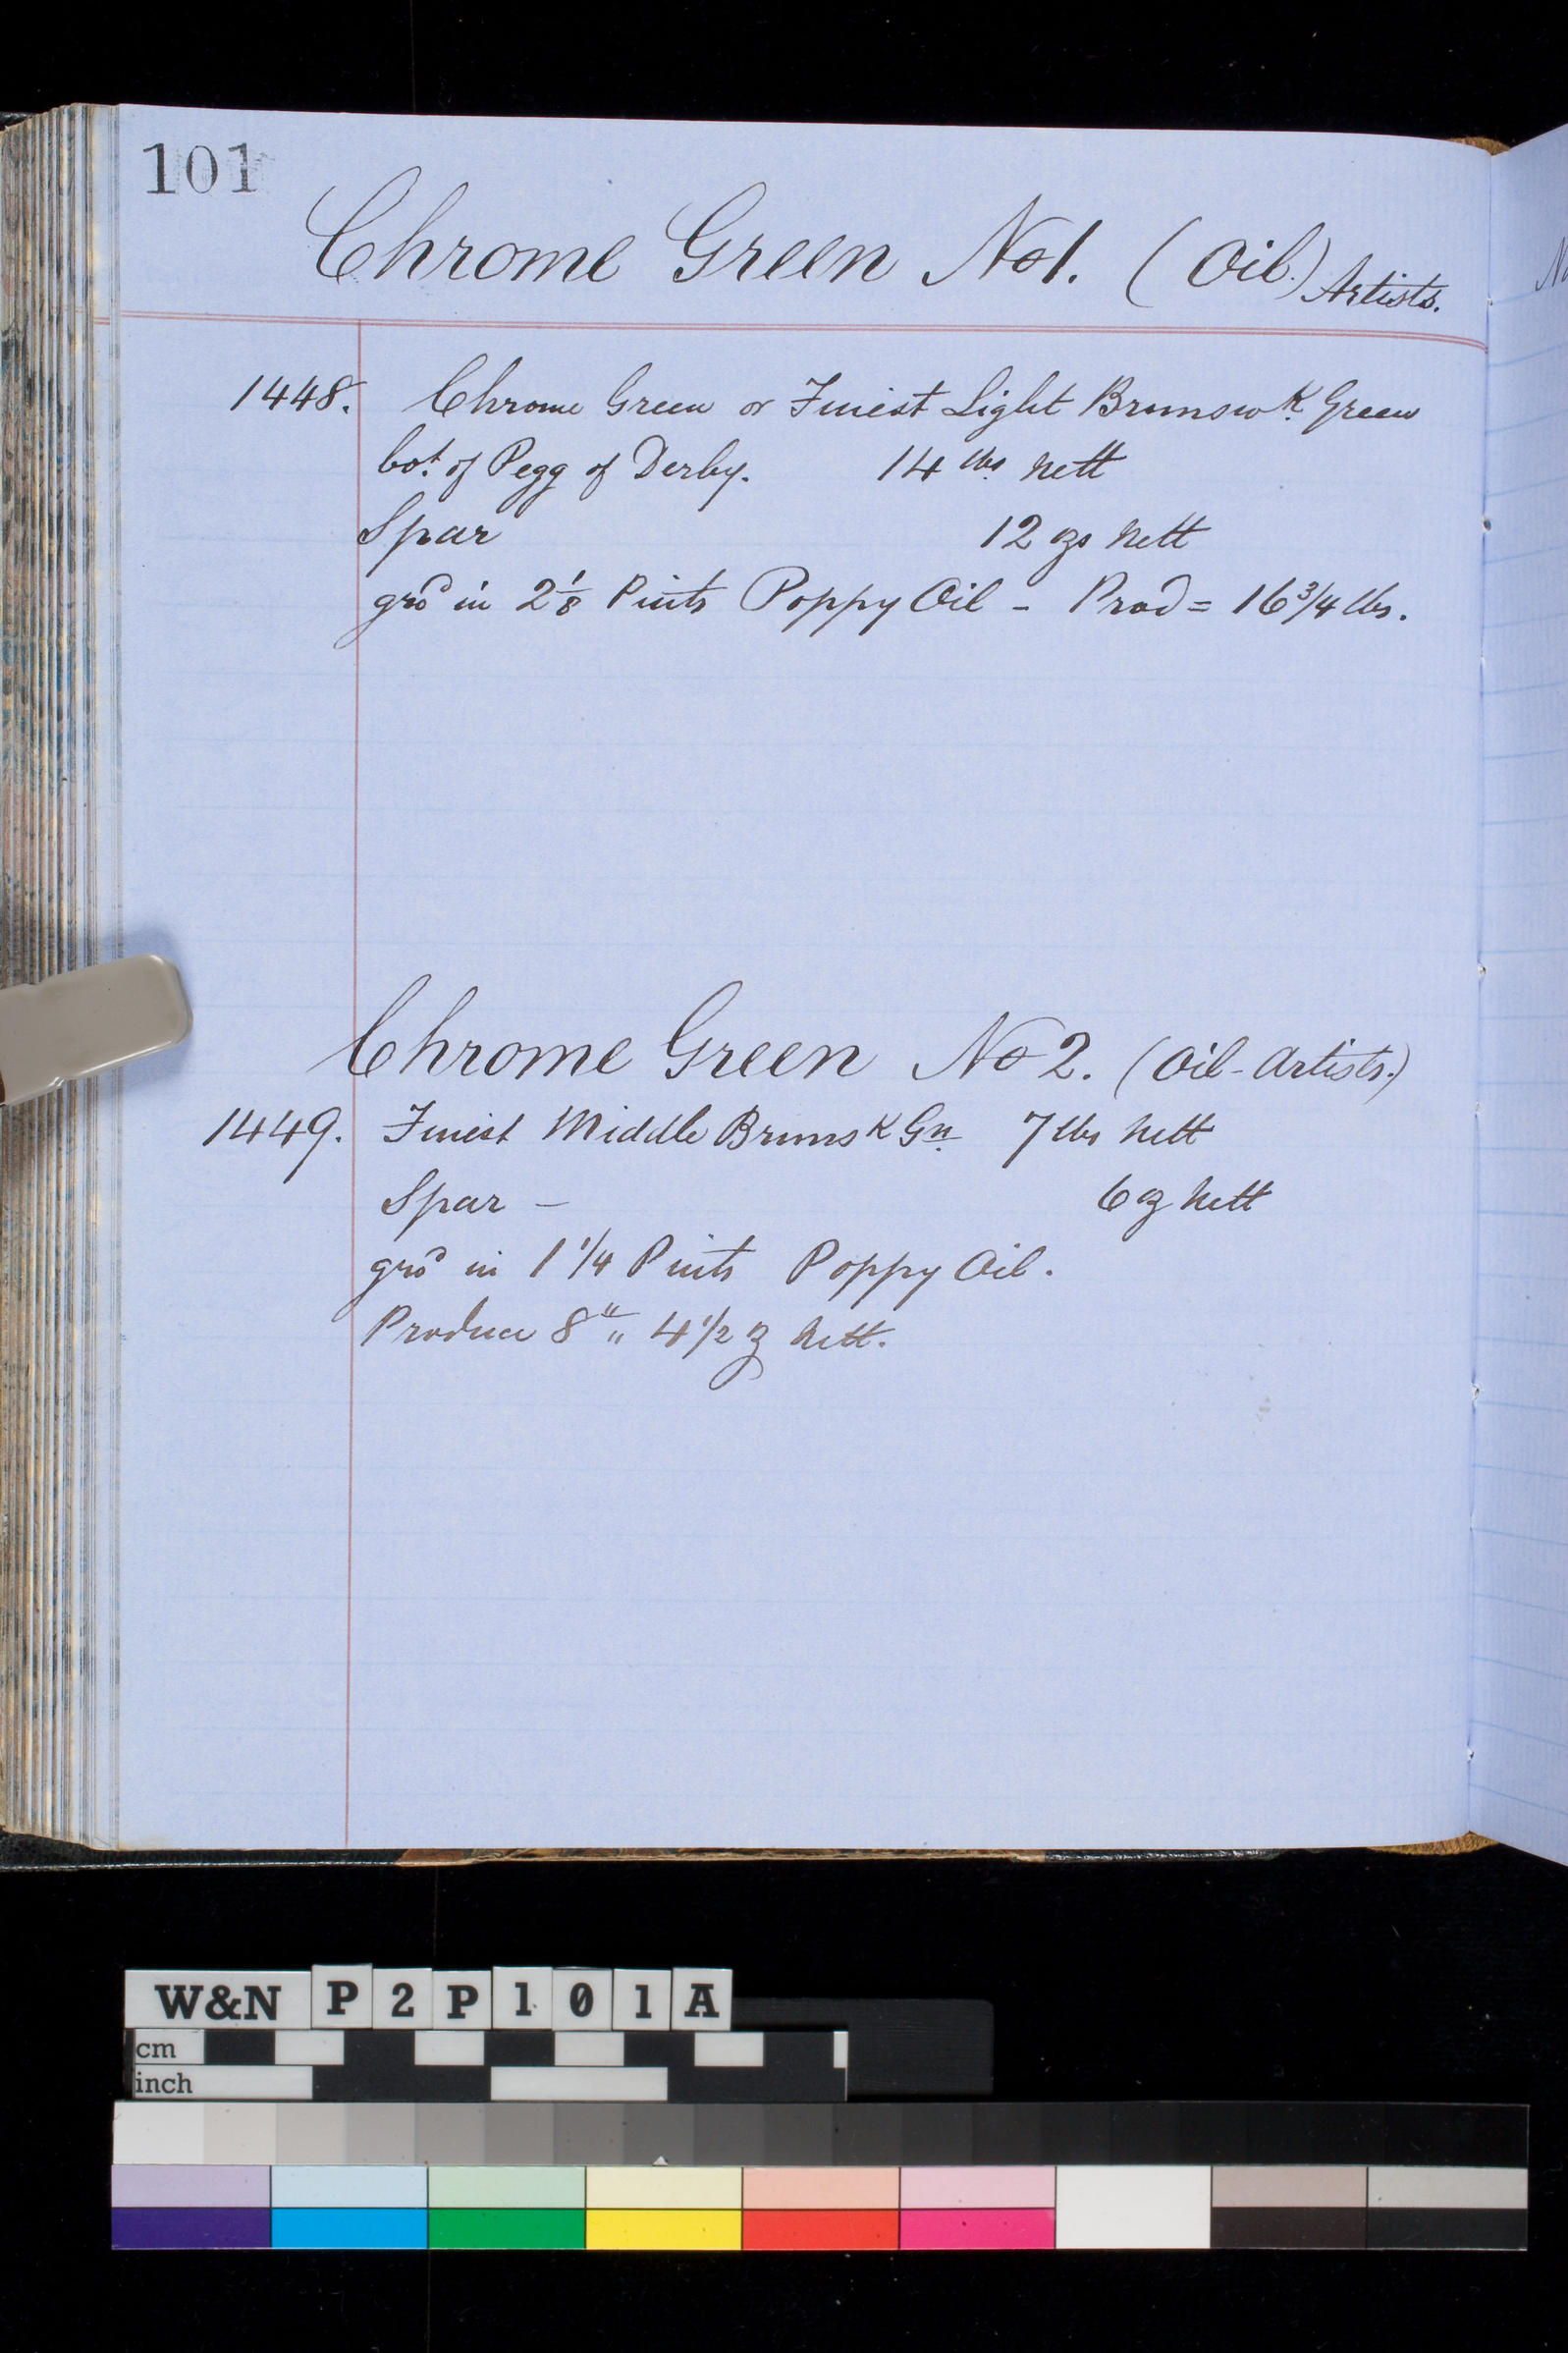 101
Chrome Green No 1. (Oil.) Artists.
1448. Chrome Green or Finest Light Brunsw K. Green
bot. of Pegg of Derby. 14 lbs. nett
Spar 12 ozs nett
grd in 2 1/8 Pints Poppy Oil - Prod = 16 3/4 lbs.
Chrome Green No 2. (Oil - Artists.)
1449. Finest Middle Bruns K Gn. 7 lbs nett
Spar - 6 oz nett
grd in 1 1/4 Pints Poppy Oil.
Produce 8 lb " 4 1/2 oz nett.
W&N P2P101A
cm
inch